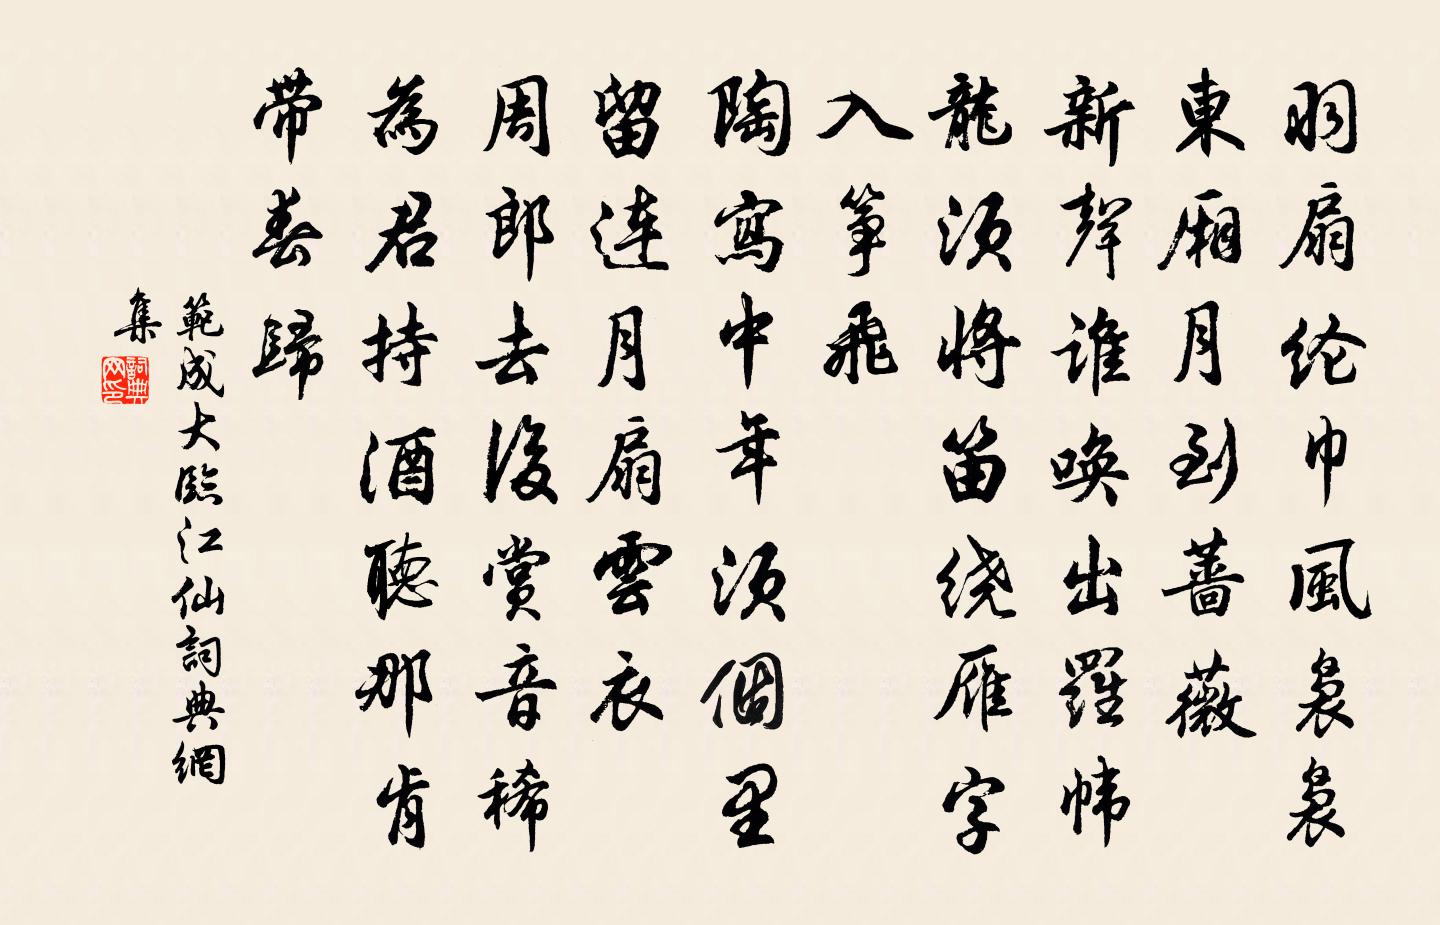 羽扇纶巾風裊裊
東厢月到薔薇
新聲谁唤出羅帏
龍须将笛绕雁字
入筝飛
陶寫中年须個里
留连月扇雲衣
周郎去後賞音稀
為君持酒聽那肯
带春歸
範成大臨江仙詞典網
集
詞典
网印